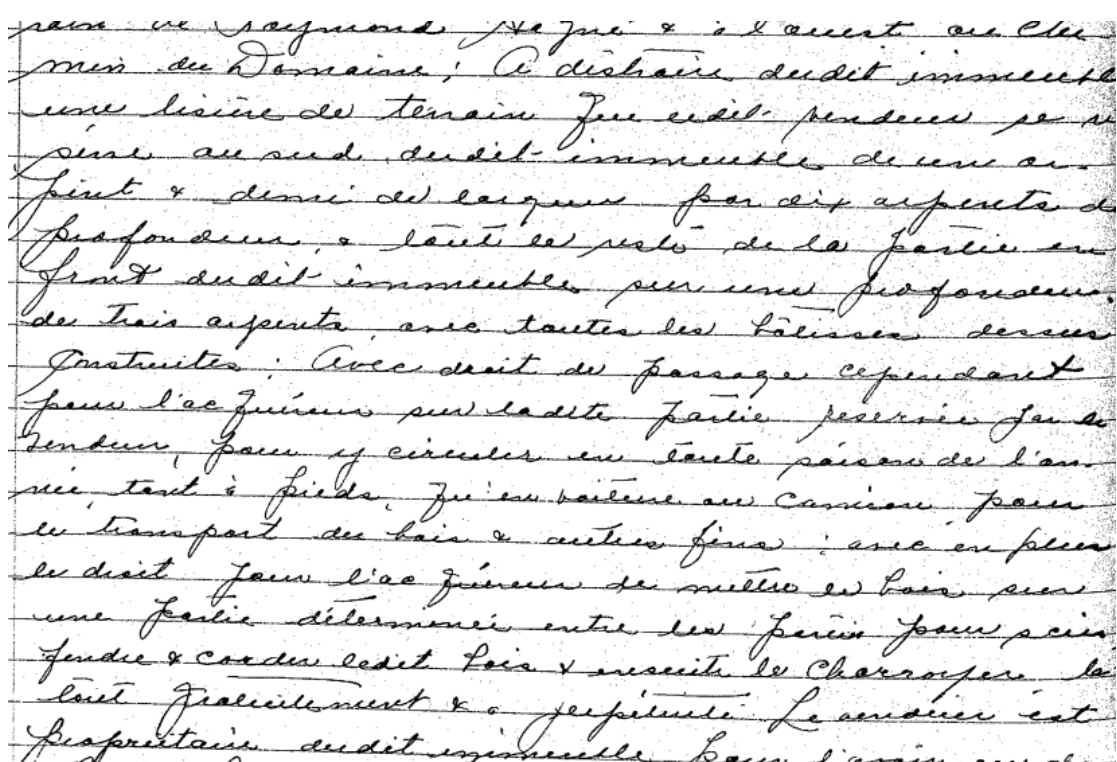 rain de Raymond Hogué & à l'ouest au Che-
min du Domaine; A distraire dudit immeuble
une lisière de terrain que ledit vendeur se ré-
serve au sud dudit immeuble de un ar-
pent & demi de largeur par dix arpents de
profondeur, & toute le reste de la partie en
front dudit immeuble sur une profondeur
de trois arpents avec toutes les bâtisses dessus
construites; Avec droit de passage cependant
pour l'acquéreur sur ladite partie réservée par le
vendeur, pour y circuler en toute saison de l'an-
née, tant à pieds, qu'en voiture ou camion pour
le transport du bois & autres fins; avec en plus
le droit pour l'acquéreur de mettre le bois sur
une partie déterminée entre les parties pour scier
fendre & corder ledit bois & ensuite le charroyer le
tout gratuitement & à perpétuité. Le vendeur est
propriétaire dudit immeuble pour l'avoir